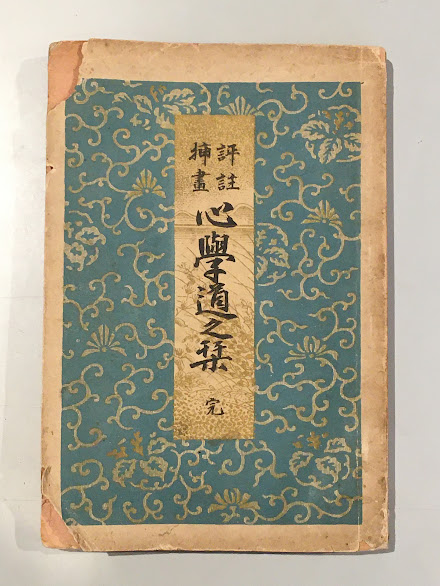 評註
挿畫
心學道之栞
完